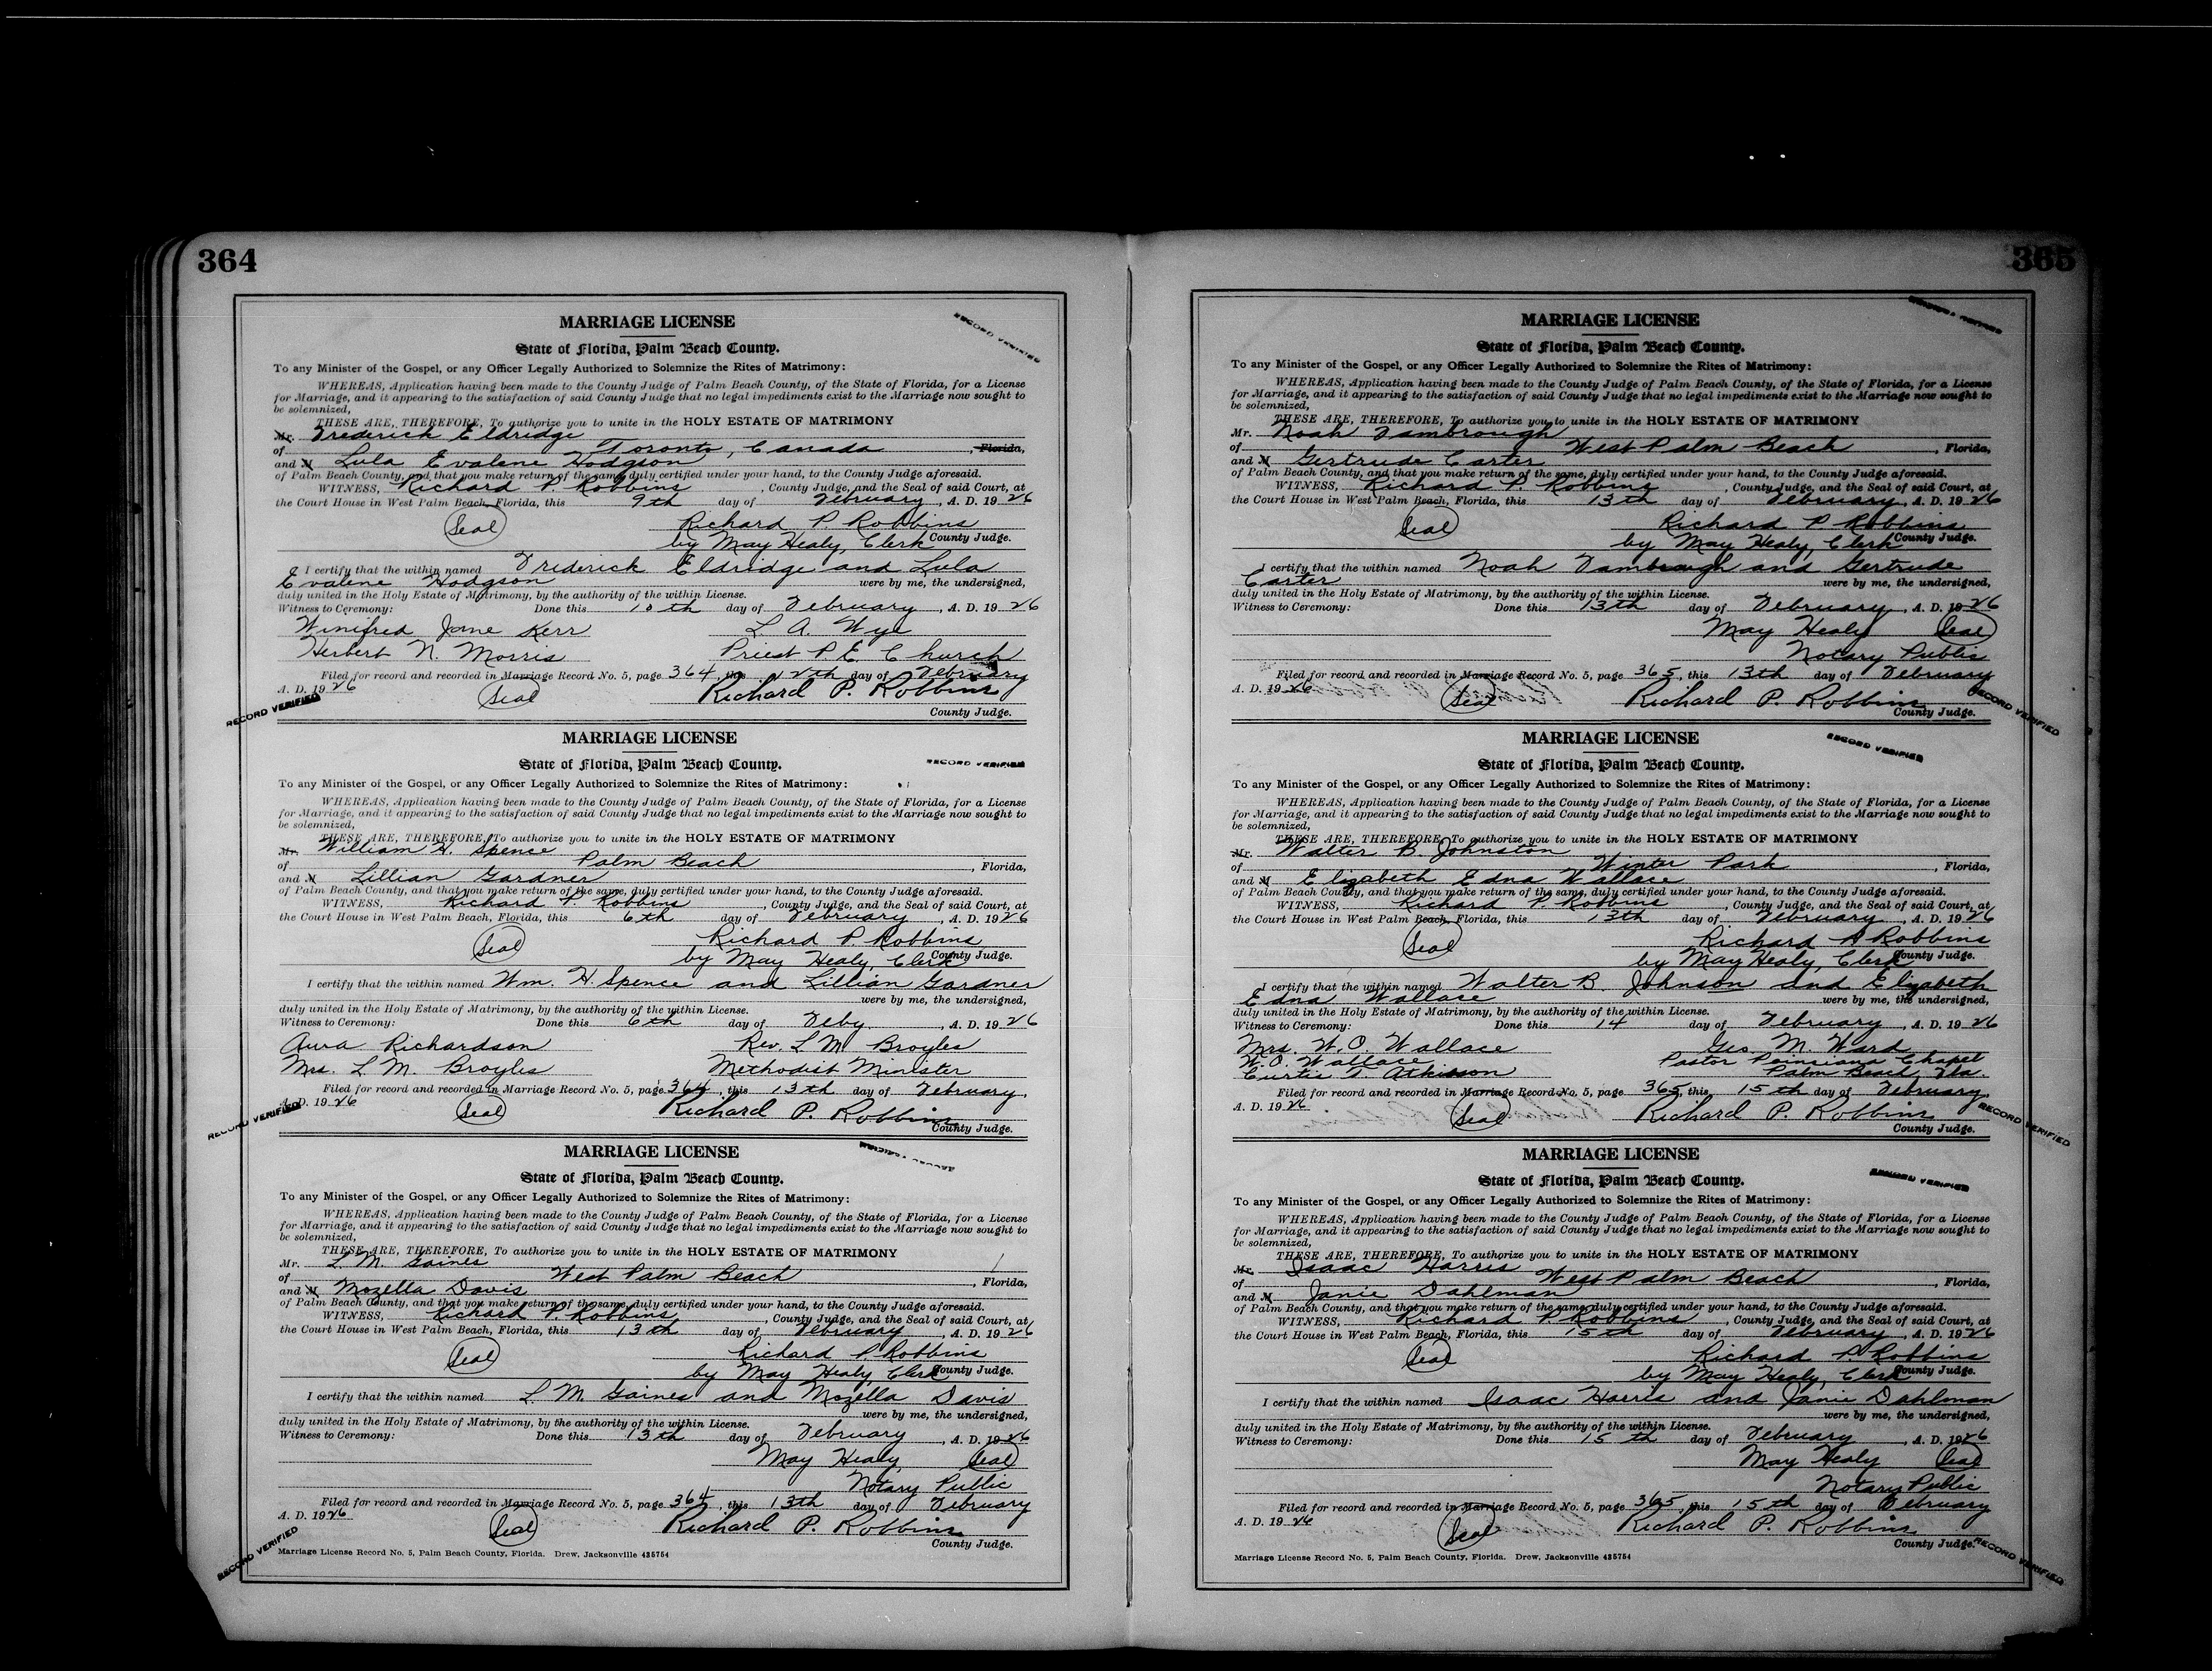 364
MARRIAGE LICENSE
RECORD VERIFIED
State of Florida, Palm Beach County.
To any Minister of the Gospel, or any Officer Legally Authorized to Solemnize the Rites of Matrimony:
WHEREAS, Application having been made to the County Judge of Palm Beach County, of the State of Florida, for a License
for Marriage, and it appearing to the satisfaction of said County Judge that no legal impediments exist to the Marriage now sought to
be solemnized,
THESE ARE, THEREFORE, To authorize you to unite in the HOLY ESTATE OF MATRIMONY
Mr. Frederick Eldridge
of Toronto, Canada Florida,
and M Lula Evalene Hodgson
of Palm Beach County, and that you make return of the same, duly certified under your hand, to the County Judge aforesaid.
WITNESS, Richard P. Robbins, County Judge, and the Seal of said Court, at
the Court House in West Palm Beach, Florida, this 9th day of February, A. D. 1926
Seal Richard P. Robbins
by May Healy, Clerk County Judge.
I certify that the within named Frederick Eldridge and Lula
Evalene Hodgson were by me, the undersigned,
duly united in the Holy Estate of Matrimony, by the authority of the within License.
Witness to Ceremony: Done this 10th day of February, A. D. 1926
Winifred Jane Kerr L. A. Wye
Herbert N. Morris Priest P. E. Church
Filed for record and recorded in Marriage Record No. 5, page 364, this 12th day of February
A. D. 1926 Seal Richard P. Robbins
RECORD VERIFIED
County Judge.
MARRIAGE LICENSE
State of Florida, Palm Beach County. RECORD VERIFIED
To any Minister of the Gospel, or any Officer Legally Authorized to Solemnize the Rites of Matrimony:
WHEREAS, Application having been made to the County Judge of Palm Beach County, of the State of Florida, for a License
for Marriage, and it appearing to the satisfaction of said County Judge that no legal impediments exist to the Marriage now sought to
be solemnized,
THESE ARE, THEREFORE, To authorize you to unite in the HOLY ESTATE OF MATRIMONY
Mr. William H. Spence
of Palm Beach, Florida,
and M Lillian Gardner
of Palm Beach County, and that you make return of the same, duly certified under your hand, to the County Judge aforesaid.
WITNESS, Richard P. Robbins, County Judge, and the Seal of said Court, at
the Court House in West Palm Beach, Florida, this 6th day of February, A. D. 1926
Seal Richard P. Robbins
by May Healy, Clerk County Judge.
I certify that the within named Wm. H. Spence and Lillian Gardner
were by me, the undersigned,
duly united in the Holy Estate of Matrimony, by the authority of the within License.
Witness to Ceremony: Done this 6th day of Feby., A. D. 1926
Aura Richardson Rev. L M Broyles
Mrs. L M. Broyles Methodist Minister
Filed for record and recorded in Marriage Record No. 5, page 364, this 13th day of February,
A. D. 1926 Seal Richard P. Robbins
RECORD VERIFIED
County Judge.
MARRIAGE LICENSE
State of Florida, Palm Beach County.
To any Minister of the Gospel, or any Officer Legally Authorized to Solemnize the Rites of Matrimony:
WHEREAS, Application having been made to the County Judge of Palm Beach County, of the State of Florida, for a License
for Marriage, and it appearing to the satisfaction of said County Judge that no legal impediments exist to the Marriage now sought to
be solemnized,
THESE ARE, THEREFORE, To authorize you to unite in the HOLY ESTATE OF MATRIMONY
Mr. L M. Gaines
of West Palm Beach, Florida,
and M Mozella Davis
of Palm Beach County, and that you make return of the same, duly certified under your hand, to the County Judge aforesaid.
WITNESS, Richard P. Robbins, County Judge, and the Seal of said Court, at
the Court House in West Palm Beach, Florida, this 13th day of February, A. D. 1926
Seal Richard P. Robbins
by May Healy, Clerk County Judge.
I certify that the within named L. M. Gaines and Mozella Davis
were by me, the undersigned,
duly united in the Holy Estate of Matrimony, by the authority of the within License.
Witness to Ceremony: Done this 13th day of February, A. D. 1926
May Healy Seal
Notary Public
Filed for record and recorded in Marriage Record No. 5, page 364, this 13th day of February
A. D. 1926 Seal Richard P. Robbins
RECORD VERIFIED
County Judge.
Marriage License Record No. 5, Palm Beach County, Florida. Drew, Jacksonville 435754
365
MARRIAGE LICENSE
State of Florida, Palm Beach County.
To any Minister of the Gospel, or any Officer Legally Authorized to Solemnize the Rites of Matrimony:
WHEREAS, Application having been made to the County Judge of Palm Beach County, of the State of Florida, for a License
for Marriage, and it appearing to the satisfaction of said County Judge that no legal impediments exist to the Marriage now sought to
be solemnized,
THESE ARE, THEREFORE, To authorize you to unite in the HOLY ESTATE OF MATRIMONY
Mr. Noah Fambrough
of West Palm Beach, Florida,
and M Gertrude Carter
of Palm Beach County, and that you make return of the same, duly certified under your hand, to the County Judge aforesaid.
WITNESS, Richard P. Robbins, County Judge, and the Seal of said Court, at
the Court House in West Palm Beach, Florida, this 13th day of February, A. D. 1926
Seal Richard P Robbins
by May Healy, Clerk County Judge.
I certify that the within named Noah Fambrough and Gertrude
Carter were by me, the undersigned,
duly united in the Holy Estate of Matrimony, by the authority of the within License.
Witness to Ceremony: Done this 13th day of February, A. D. 1926
May Healy Seal
Notary Public
Filed for record and recorded in Marriage Record No. 5, page 365, this 13th day of February
A. D. 1926 Seal Richard P. Robbins
RECORD VERIFIED
County Judge.
MARRIAGE LICENSE
RECORD VERIFIED
State of Florida, Palm Beach County.
To any Minister of the Gospel, or any Officer Legally Authorized to Solemnize the Rites of Matrimony:
WHEREAS, Application having been made to the County Judge of Palm Beach County, of the State of Florida, for a License
for Marriage, and it appearing to the satisfaction of said County Judge that no legal impediments exist to the Marriage now sought to
be solemnized,
THESE ARE, THEREFORE, To authorize you to unite in the HOLY ESTATE OF MATRIMONY
Mr. Walter B. Johnston
of Winter Park, Florida,
and M Elizabeth Edna Wallace
of Palm Beach County, and that you make return of the same, duly certified under your hand, to the County Judge aforesaid.
WITNESS, Richard P. Robbins, County Judge, and the Seal of said Court, at
the Court House in West Palm Beach, Florida, this 13th day of February, A. D. 1926
Seal Richard P Robbins
by May Healy, Clerk County Judge.
I certify that the within named Walter B. Johnson and Elizabeth
Edna Wallace were by me, the undersigned,
duly united in the Holy Estate of Matrimony, by the authority of the within License.
Witness to Ceremony: Done this 14 day of February, A. D. 1926
Mrs. W. O. Wallace Geo M. Ward
W. O. Wallace Pastor Poinciana Chapel
Curtis Atkisson Palm Beach, Fla.
Filed for record and recorded in Marriage Record No. 5, page 365, this 15th day of February,
A. D. 1926 Seal Richard P. Robbins
RECORD VERIFIED
County Judge.
MARRIAGE LICENSE
RECORD VERIFIED
State of Florida, Palm Beach County.
To any Minister of the Gospel, or any Officer Legally Authorized to Solemnize the Rites of Matrimony:
WHEREAS, Application having been made to the County Judge of Palm Beach County, of the State of Florida, for a License
for Marriage, and it appearing to the satisfaction of said County Judge that no legal impediments exist to the Marriage now sought to
be solemnized,
THESE ARE, THEREFORE, To authorize you to unite in the HOLY ESTATE OF MATRIMONY
Mr. Isaac Harris
of West Palm Beach, Florida,
and M Janie Dahlman
of Palm Beach County, and that you make return of the same duly certified under your hand, to the County Judge aforesaid.
WITNESS, Richard P Robbins, County Judge, and the Seal of said Court, at
the Court House in West Palm Beach, Florida, this 15th day of February, A. D. 1926
Seal Richard P. Robbins
by May Healy, Clerk County Judge.
I certify that the within named Isaac Harris and Janie Dahlman
were by me, the undersigned,
duly united in the Holy Estate of Matrimony, by the authority of the within License.
Witness to Ceremony: Done this 15th day of February, A. D. 1926
May Healy Seal
Notary Public
Filed for record and recorded in Marriage Record No. 5, page 365, this 15th day of February
A. D. 1926 Seal Richard P. Robbins
County Judge. RECORD VERIFIED
Marriage License Record No. 5, Palm Beach County, Florida. Drew, Jacksonville 435754